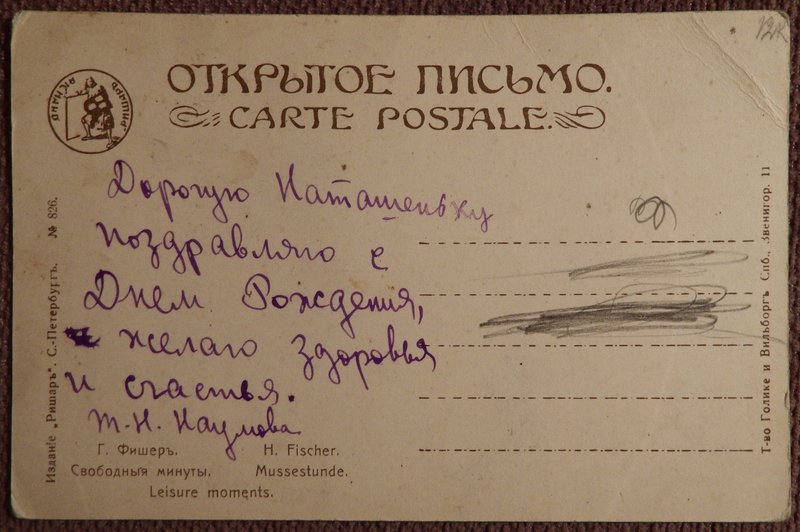 ОТКРЫТОЕ ПИСЬМО.
CARTE POSTALE.
РИШАРЪ
Дорогую Наташеньку
поздравляю с
Днем Рождения,
желаю здоровья
и счастья.
Т. Н. Наумова
Г. Фишеръ.
H. Fischer.
Свободныя минуты.
Mussestunde.
Leisure moments.
Изданіе „Ришаръ“. С.-Петербургъ. № 826.
Т-во Голике и Вильборгъ Спб., Звенигор. 11